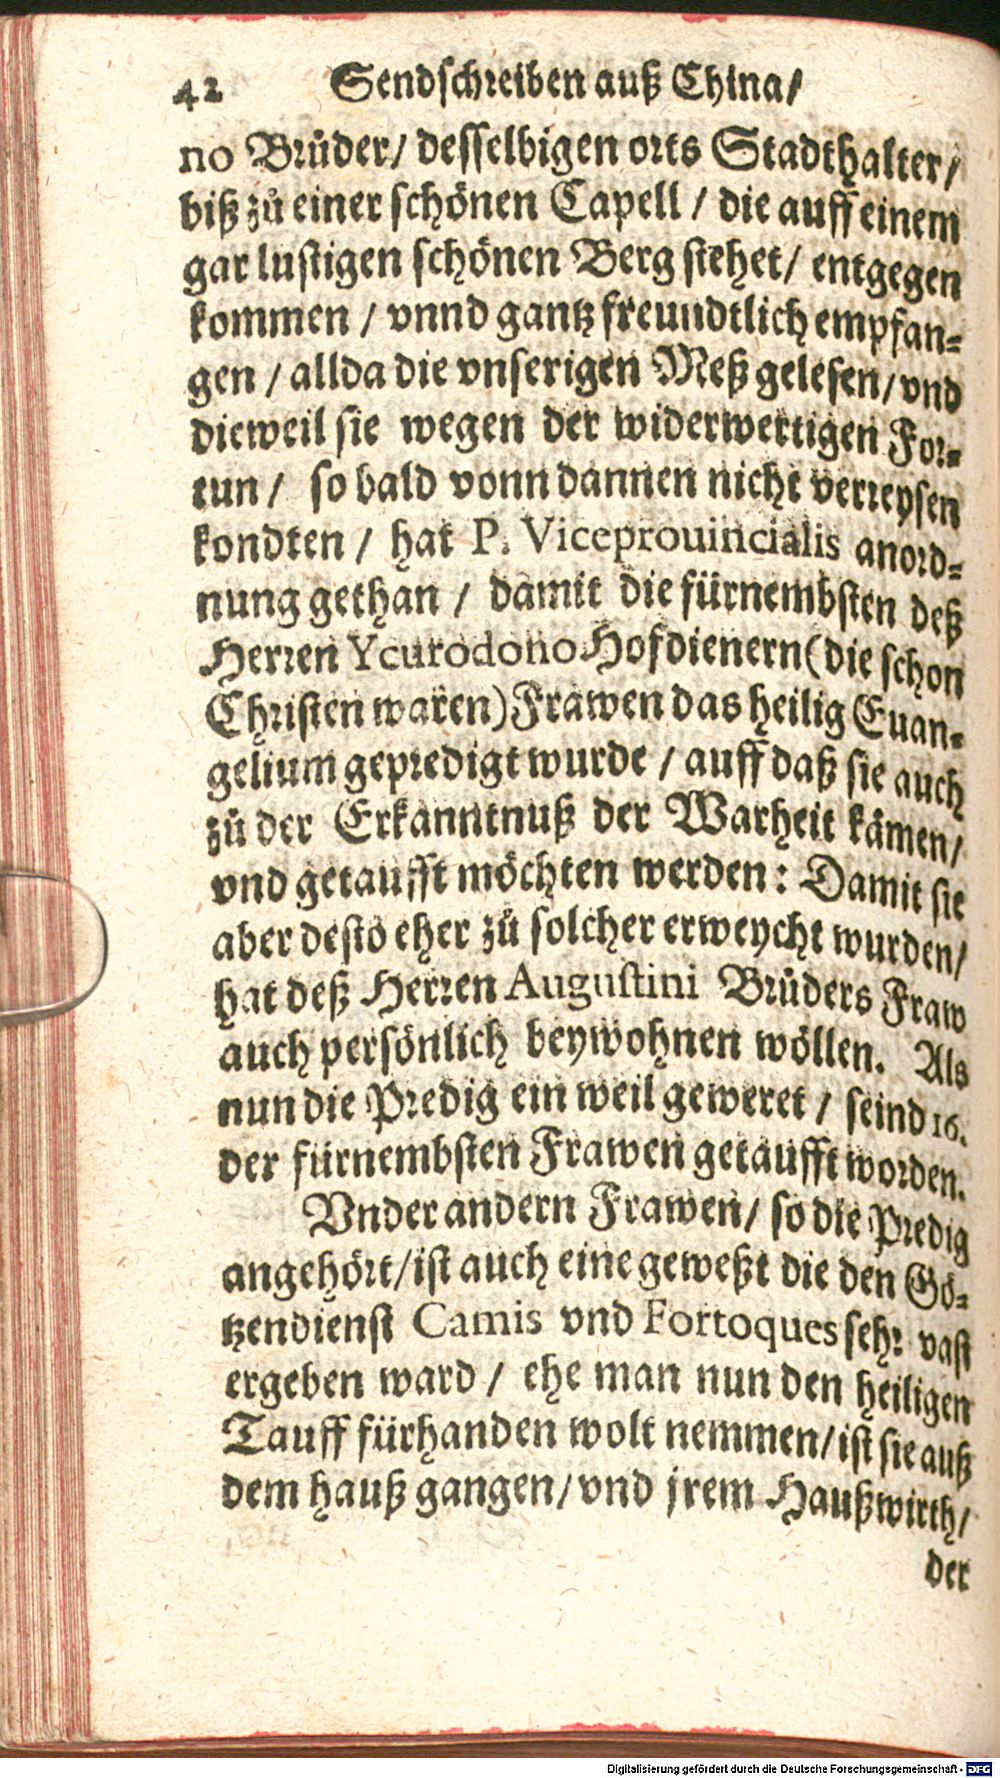 42 Sendschreiben auß China/
no Brůder/ desselbigen orts Stadthalter/
biß zů einer schönen Capell / die auff einem
gar lustigen schönen Berg stehet/ entgegen
kommen / vnnd gantz freundtlich empfan-
gen / allda die vnserigen Meß gelesen/ vnd
dieweil sie wegen der widerwertigen For-
tun / so bald vonn dannen nicht verreysen
kondten / hat P. Viceprouincialis anord-
nung gethan / damit die fürnembsten deß
Herren Ycurodono Hofdienern (die schon
Christen waren) Frawen das heilig Euan-
gelium gepredigt wurde / auff daß sie auch
zů der Erkanntnuß der Warheit kämen/
vnd getaufft möchten werden: Damit sie
aber desto eher zů solcher erweycht wurden/
hat deß Herren Augustini Brůders Fraw
auch persönlich beywohnen wöllen. Als
nun die Predig ein weil geweret / seind 16.
der fürnembsten Frawen getaufft worden.
Vnder andern Frawen/ so die Predig
angehört/ ist auch eine geweßt die den Gö-
tzendienst Camis vnd Fortoques sehr vast
ergeben ward / ehe man nun den heiligen
Tauff fürhanden wolt nemmen/ ist sie auß
dem hauß gangen/ vnd jrem Haußwirth/
der
Digitalisierung gefördert durch die Deutsche Forschungsgemeinschaft - DFG